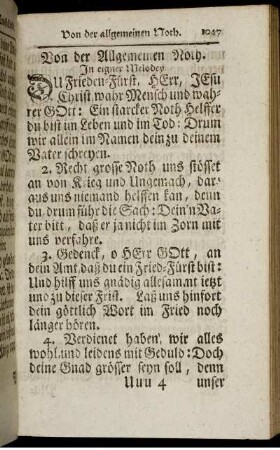 Von der allgemeinen Noth. 1047
Von der Allgemeinen Noth.
In eigner Melodey.
DU Frieden-Fürst, HErr, JESu
Christ wahr Mensch und wah-
rer GOtt: Ein starcker Noth-Helffer
du bist im Leben und im Tod: Drum
wir allein im Namen dein zu deinem
Vater schreyen.
2. Recht grosse Noth uns stösset
an von Krieg und Ungemach, dar-
aus uns niemand helffen kan, denn
du, drum führ die Sach: Dein'n Va-
ter bitt, daß er ja nicht im Zorn mit
uns verfahre.
3. Gedenck, o HErr GOtt, an
dein Amt, daß du ein Fried-Fürst bist:
Und hilff uns gnädig allesammt ietzt
und zu dieser Frist. Laß uns hinfort
dein göttlich Wort im Fried noch
länger hören.
4. Verdienet haben wir alles
wohl, und leidens mit Geduld: Doch
deine Gnad grösser seyn soll, denn
Uuu 4 unser